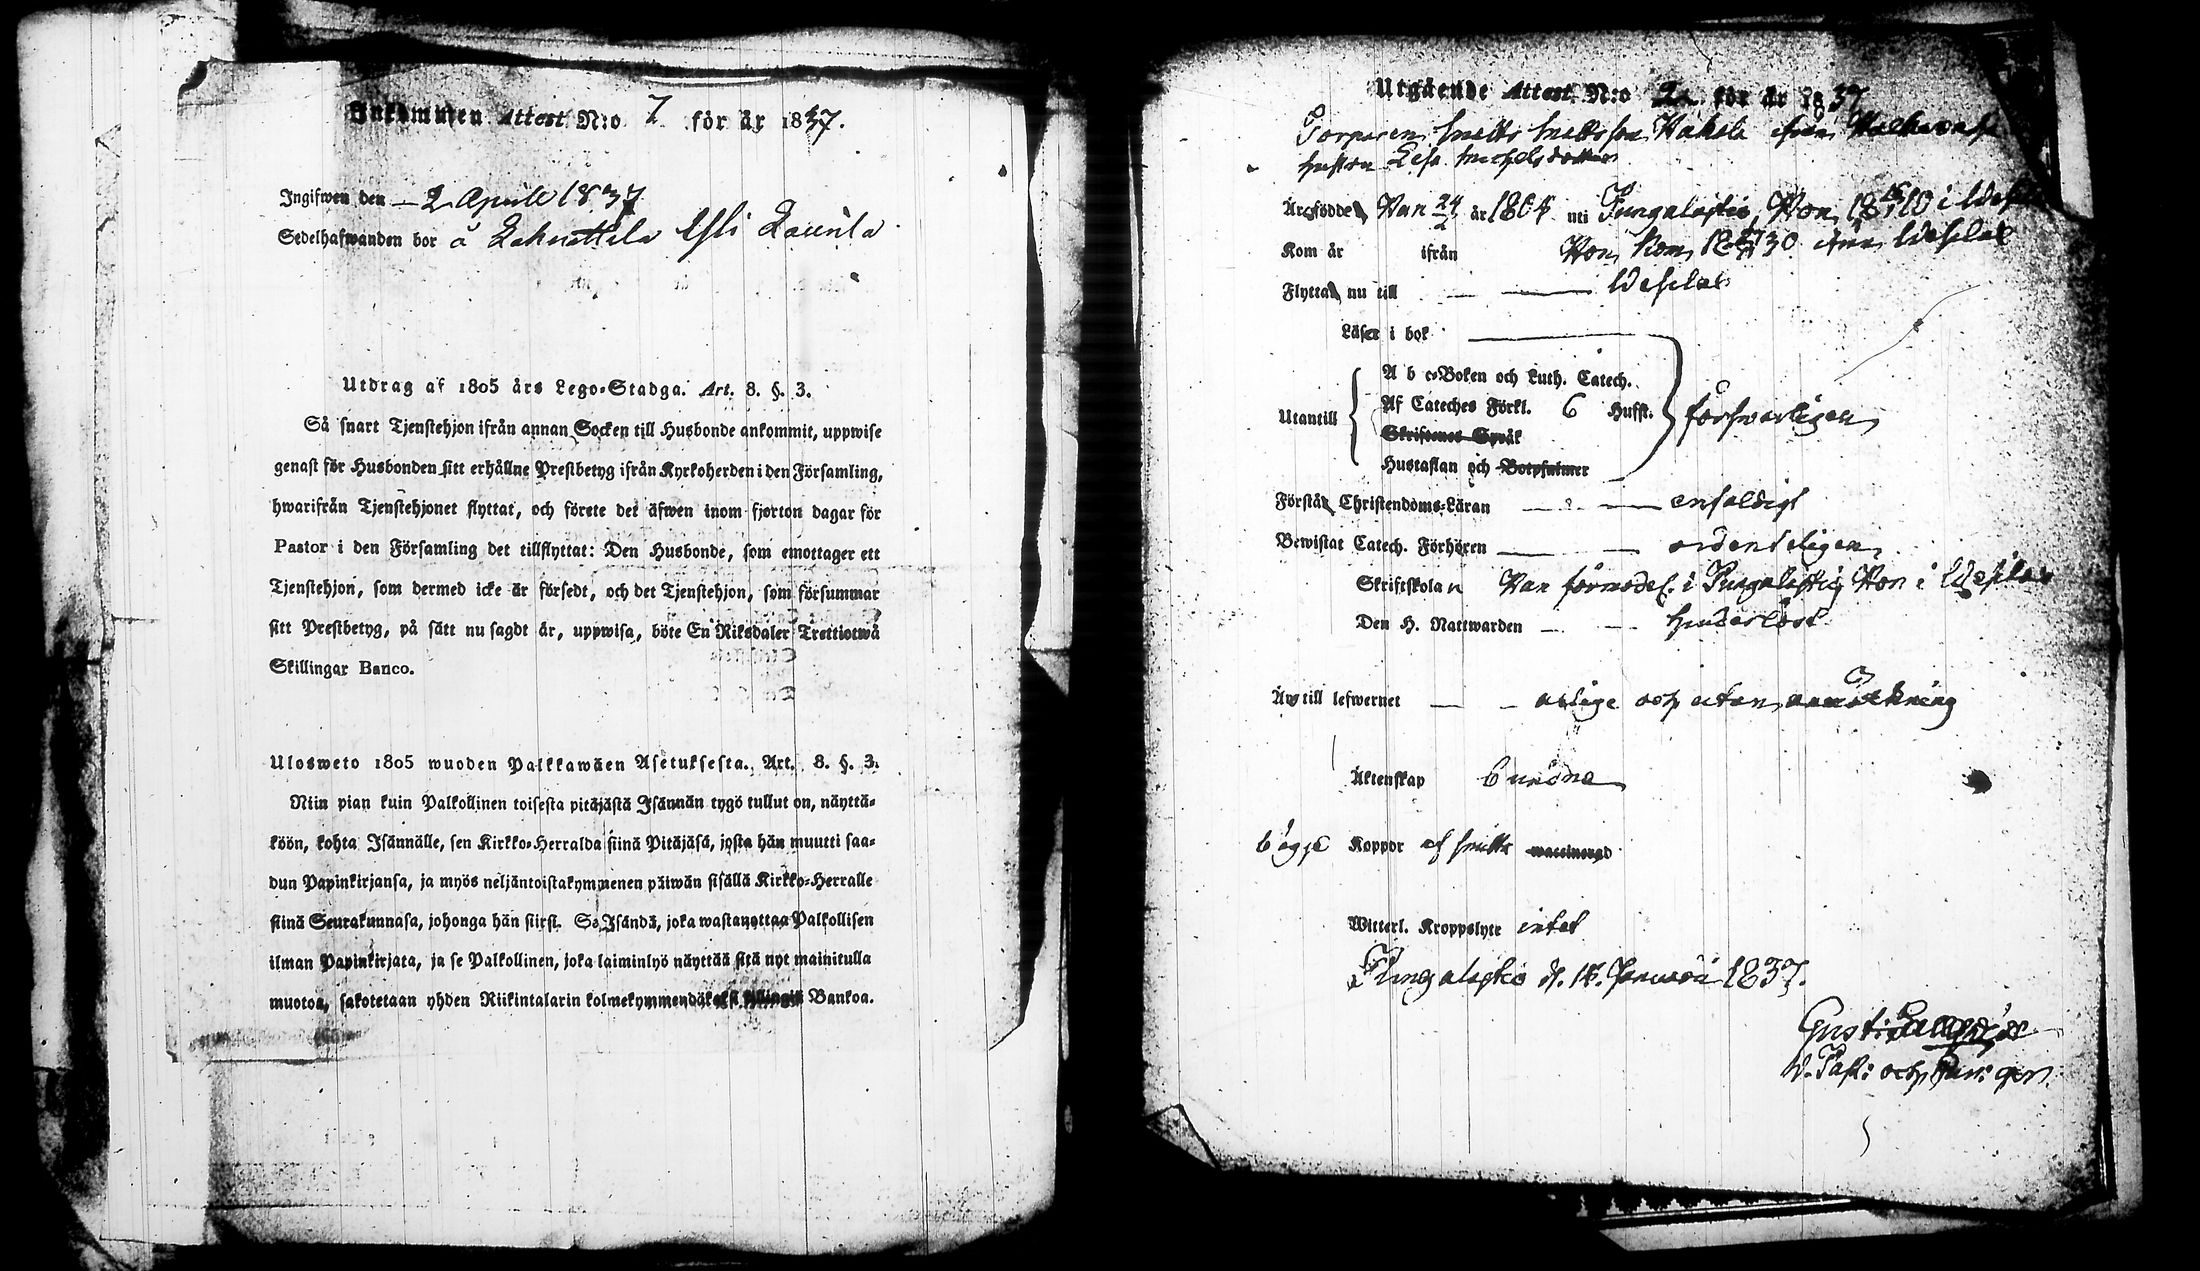 Inkommen Attest N:o 7 för år 1837.
Ingifwen den — 2 Aprill 1837
Sedelhafwanden bor å Lahnattila Ylli Laurila
Utdrag af 1805 års Lego-Stadga. Art. 8. §. 3.
Så snart Tjenstehjon ifrån annan Socken till Husbonde ankommit, uppwise
genast för Husbonden sitt erhållne Prestbetyg ifrån Kyrkoherden i den Församling,
hwarifrån Tjenstehjonet flyttat, och förete det äfwen inom fjorton dagar för
Pastor i den Församling det tillflyttat: Den Husbonde, som emottager ett
Tjenstehjon, som dermed icke är försedt, och det Tjenstehjon, som försummar
sitt Prestbetyg, på sätt nu sagdt är, uppwisa, böte En Riksdaler Trettiotwå
Skillingar Banco.
Ulosweto 1805 wuoden Palkkawäen Asetuksesta. Art. 8. §. 3.
Niin pian kuin Palkollinen toisesta pitäjästä Isännän tygö tullut on, näyttä-
köön, kohta Isännälle, sen Kirkko-Herralda siinä Pitäjäsä, josta hän muutti saa-
dun Papinkirjansa, ja myös neljäntoistakymmenen päiwän sisällä Kirkko-Herralle
siinä Seurakunnasa, johonga hän siirsi. Se Isändä, joka wastanottaa Palkollisen
ilman Papinkirjata, ja se Palkollinen, joka laiminlyö näyttää sitä nyt mainitulla
muotoa, sakotetaan yhden Riikintalarin kolmekymmendäkaksi killingiä Bankoa.
Utgående Attest N:o 2 för år 1837
Torparen Matts Mattsson Hakola ifrån
hustru Lisa Michelsdotter
Äro födde Han 24/2 år 1804 uti Pungalaitio, Hon 1810 i
Kom år ifrån Hon kom 1830 ifrån
Flytta nu till — —
Läser i bok
A b c-Boken och Luth. Catech.
Utantill Af Cateches Förkl. 6 Hufst. försvarligen
Skriftenes Språk
Hustaflan och Botpsalmer
Förstå Christendoms-Läran — — enfaldigt
Bewistat Catech. Förhören — — ordenteligen
Skriftskolan Han förmodel. i Pungalaitio Hon i
Den H. Nattwarden — — hinderlöst
Äro till lefwernet — — ärlige och utan anmärkning
Äktenskap bundna
bägge Koppor af smitta waccinerad
Witterl. Kroppslyte intet
Pungalaitio d. Januarii 1837.
V. Past: och